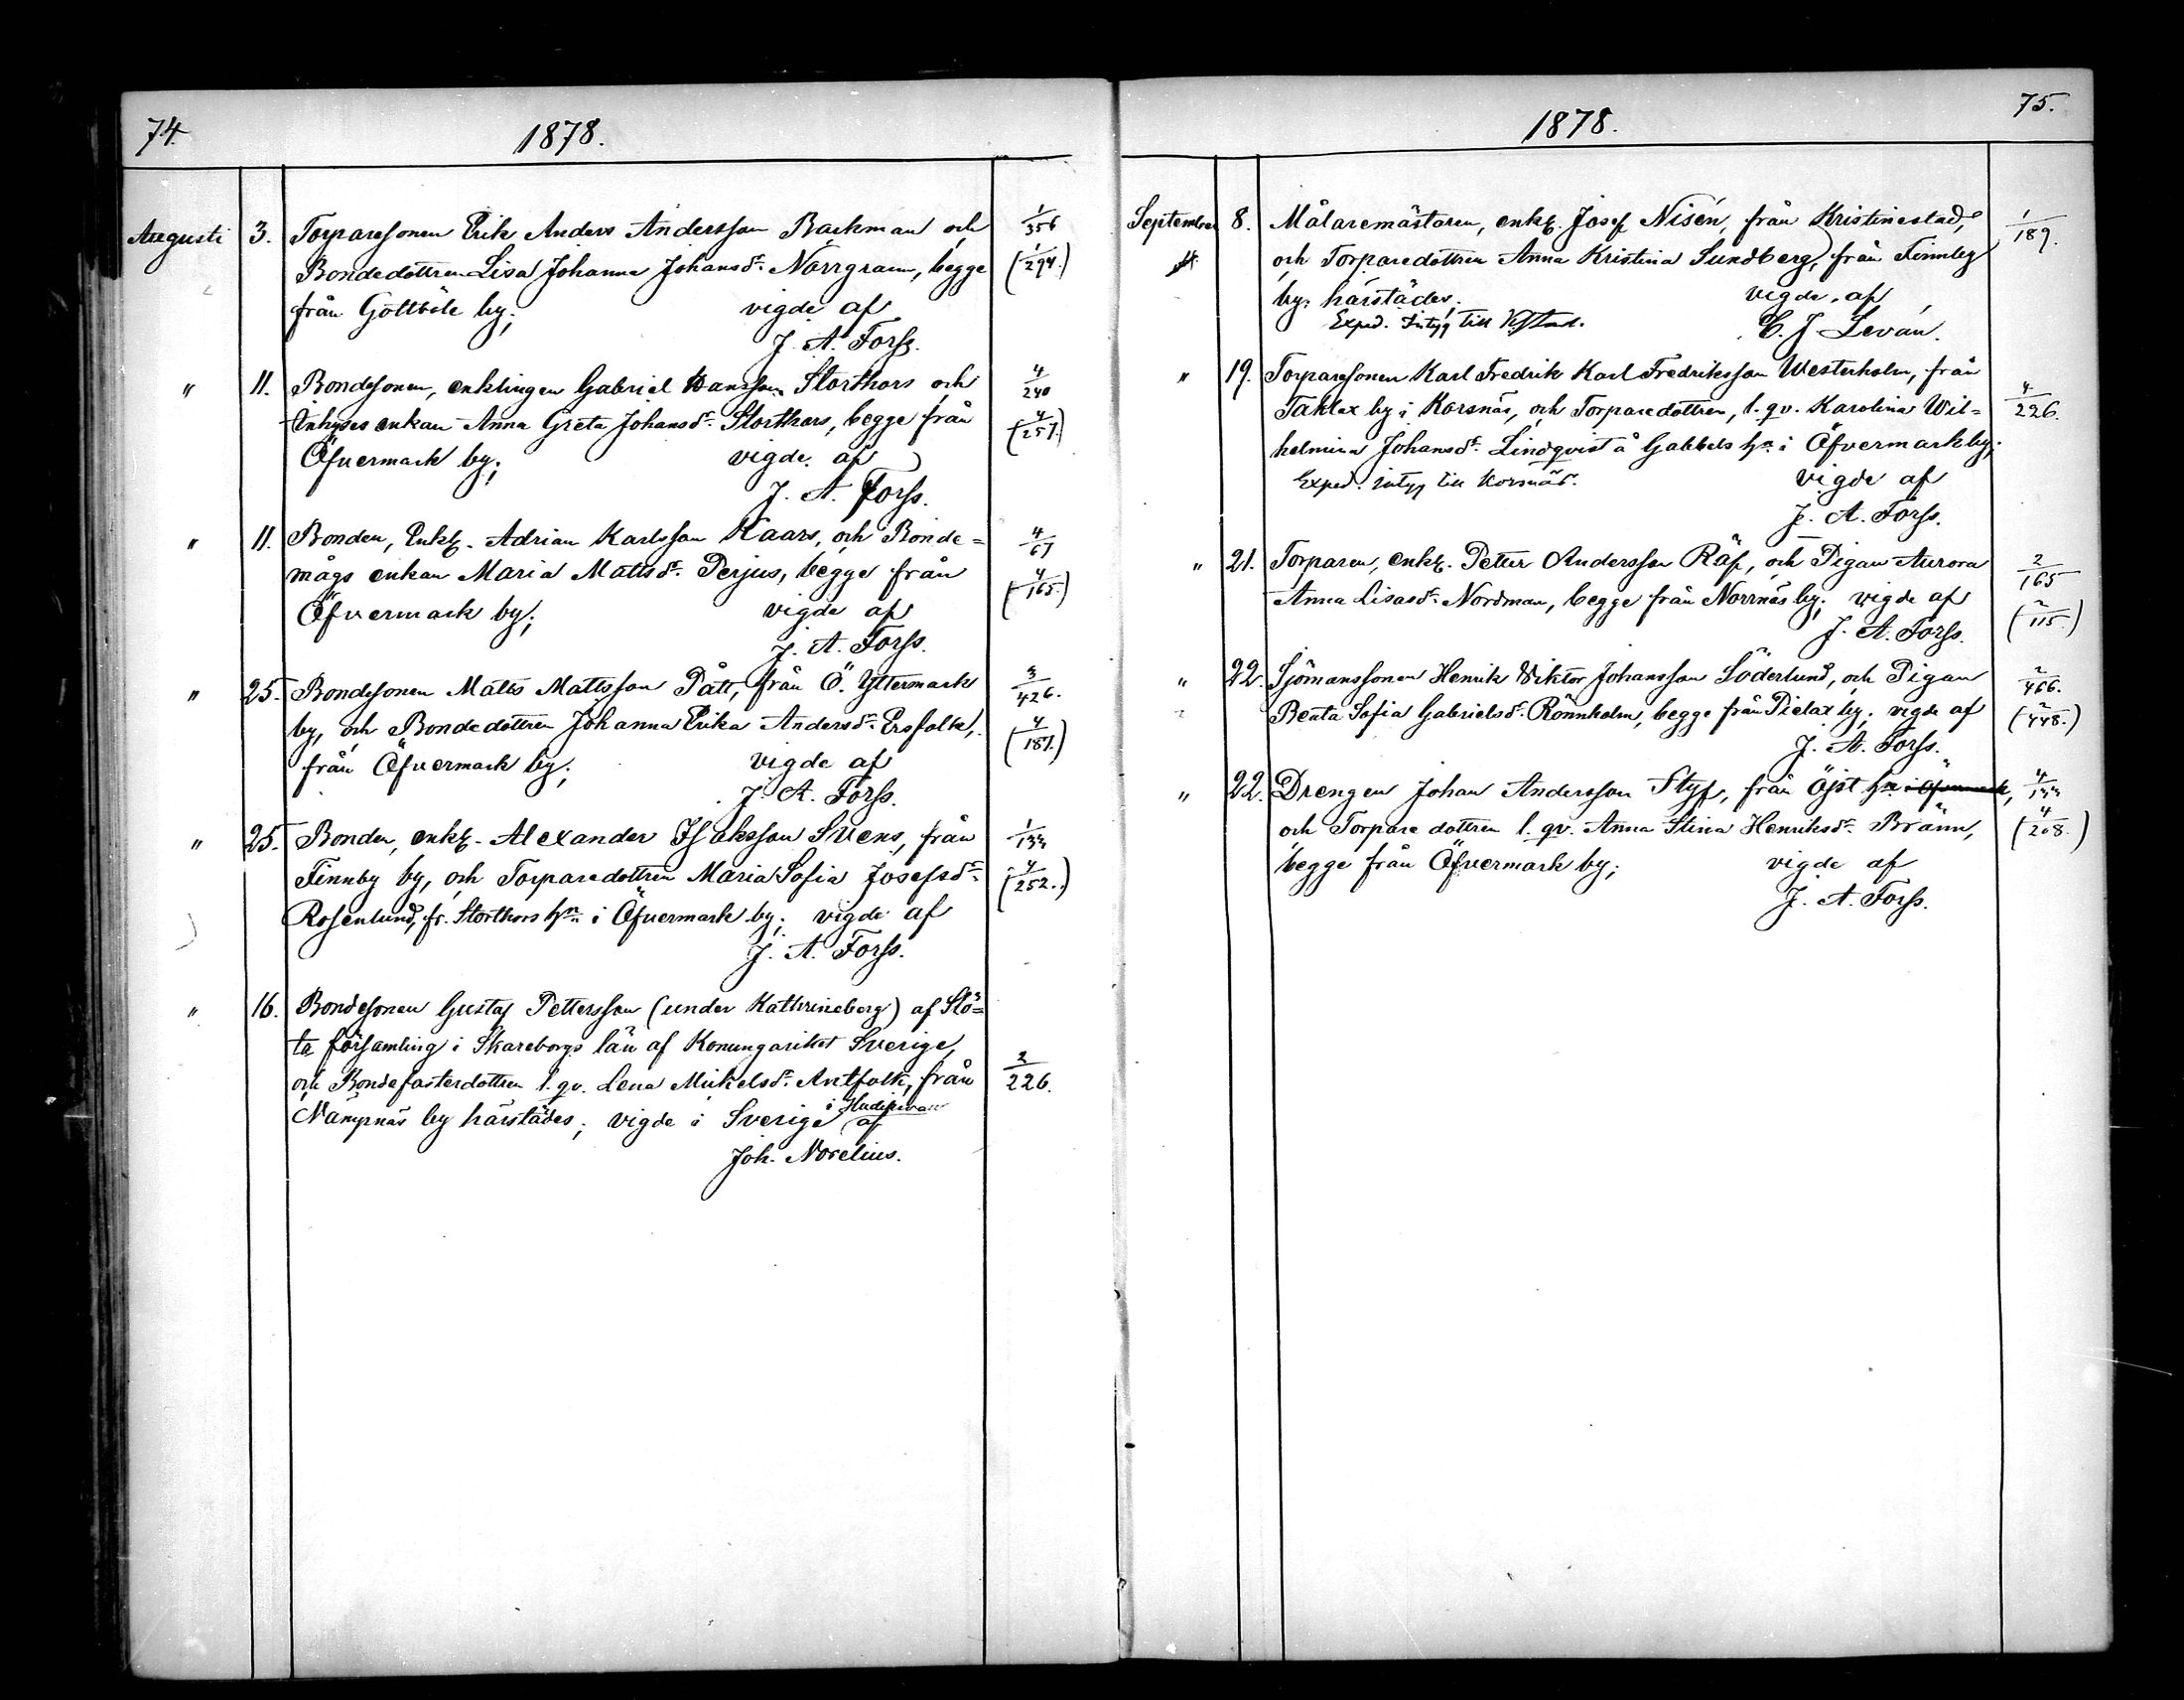 74.
1878.
Augusti 3. Torparesonen Erik Anders Andersson Backman och 1/356
Bondedottren Lisa Johanna Johansdr. Norrgrann, begge (1/294.)
från Gottböle by; vigde af
J. A. Forss.
" 11. Bondesonen, enklingen Gabriel Hansson Storthors och 4/240
Inhyses enkan Anna Greta Johansdr. Storthors, begge från (4/257.)
Öfvermark by; vigde af
J. A. Forss.
" 11. Bonden, Enkl. Adrian Karlsson Kaars, och Bonde= 4/67
mågs enkan Maria Mattsdr. Perjus, begge från (4/165.)
Öfvermark by; vigde af
J. A. Forss.
" 25. Bondesonen Matts Mattsson Pått, från Ö. Yttermark 3/426.
by, och Bondedottren Johanna Erika Andersdr. Ersfolk, (4/187.)
från Öfvermark by; vigde af
J. A. Forss.
" 25. Bonden, enkl. Alexander Isaksson Svens, från 1/133
Finnby by, och Torparedottren Maria Sofia Josefsdr. (4/252.)
Rosenlund, fr. Storthors hn. i Öfvermark by; vigde af
J. A. Forss.
" 16. Bondesonen Gustaf Pettersson (under Kathrineberg) af Slö=
ta församling i Skareborgs län af Konungariket Sverige,
och Bondefasterdottren l. qv. Lena Mickelsdr. Antfolk, från 2/226.
Nämpnäs by härstädes; vigde i Sverige i af
Joh. Norelius.
75.
1878.
September 8. Målaremästaren, enkl. Josef Nisén, från Kristinestad, 1/189.
och Torparedottren Anna Kristina Sundberg, från Finnby
by härstädes; vigde af
Exped. Intyg till Kstad. C. J. Leván.
" 19. Torparesonen Karl Fredrik Karl Fredriksson Westerholm, från
Taklax by i Korsnäs, och Torparedottren, l. qv. Karolina Wil= 4/226.
helmina Johansdr. Lindqvist å Gabbels hn. i Öfvermark by;
Exped. intyg till Korsnäs. vigde af
J. A. Forss.
" 21. Torparen, enkl. Petter Andersson Räf, och Pigan Aurora 2/165
Anna Lisasdr. Nordman, begge från Norrnäs by; vigde af (2/115.)
J. A. Forss.
" 22. Sjömanssonen Henrik Wiktor Johansson Söderlund, och Pigan 2/466.
Beata Sofia Gabrielsdr. Rönnholm, begge från Pielax by; vigde af (2/448.)
J. A. Forss.
" 22. Drengen Johan Andersson Styf, från Öjst hn i Öfvermark, 4/133
och Torparedottren l. qv. Anna Stina Henriksdr. Bränn, (4/208.)
begge från Öfvermark by; vigde af
J. A. Forss.